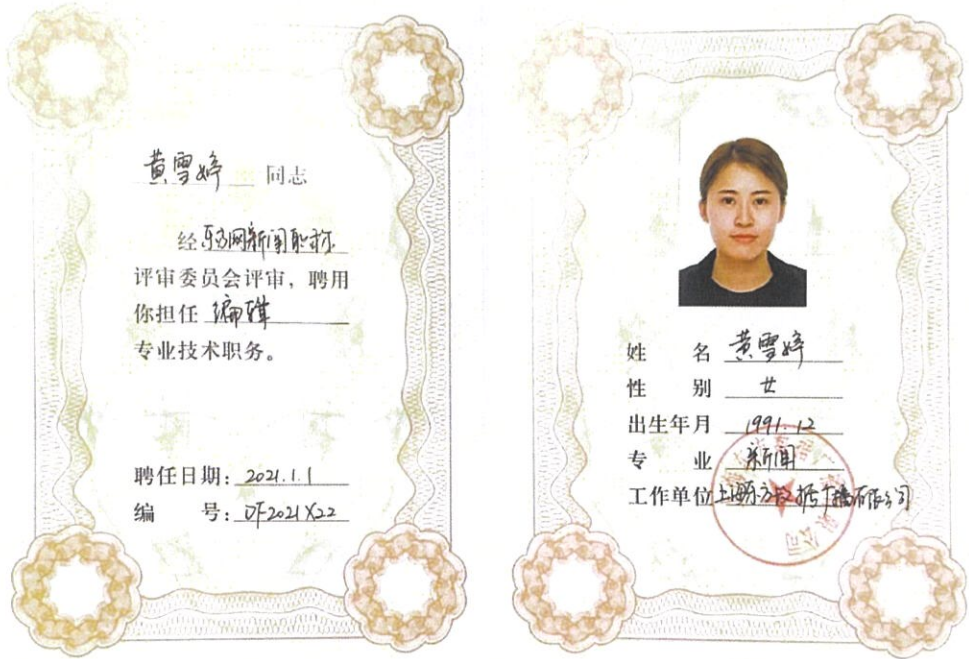 黄雪婷 同志
经东方网新闻职称
评审委员会评审，聘用
你担任 编辑
专业技术职务。
聘任日期：2021.1.1
编 号：DF2021X22
姓 名 黄雪婷
性 别 女
出生年月 1991.12
专 业 新闻
工作单位上海东方数据广播有限公司